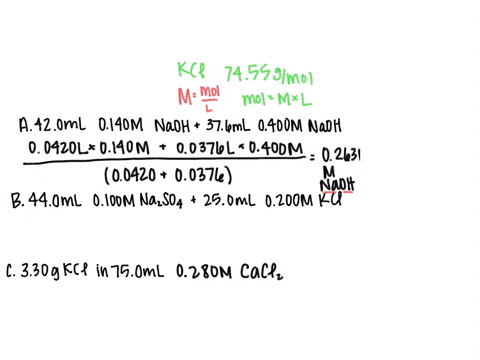 KCl 74.55g/mol
M = mol/L mol = M × L
A. 42.0mL 0.140M NaOH + 37.6mL 0.400M NaOH
0.0420L × 0.140M + 0.0376L × 0.400M
(0.0420 + 0.0376)
= 0.2631
M
NaOH
B. 44.0mL 0.100M Na₂SO₄ + 25.0mL 0.200M KCl
C. 3.30g KCl in 75.0mL 0.280M CaCl₂